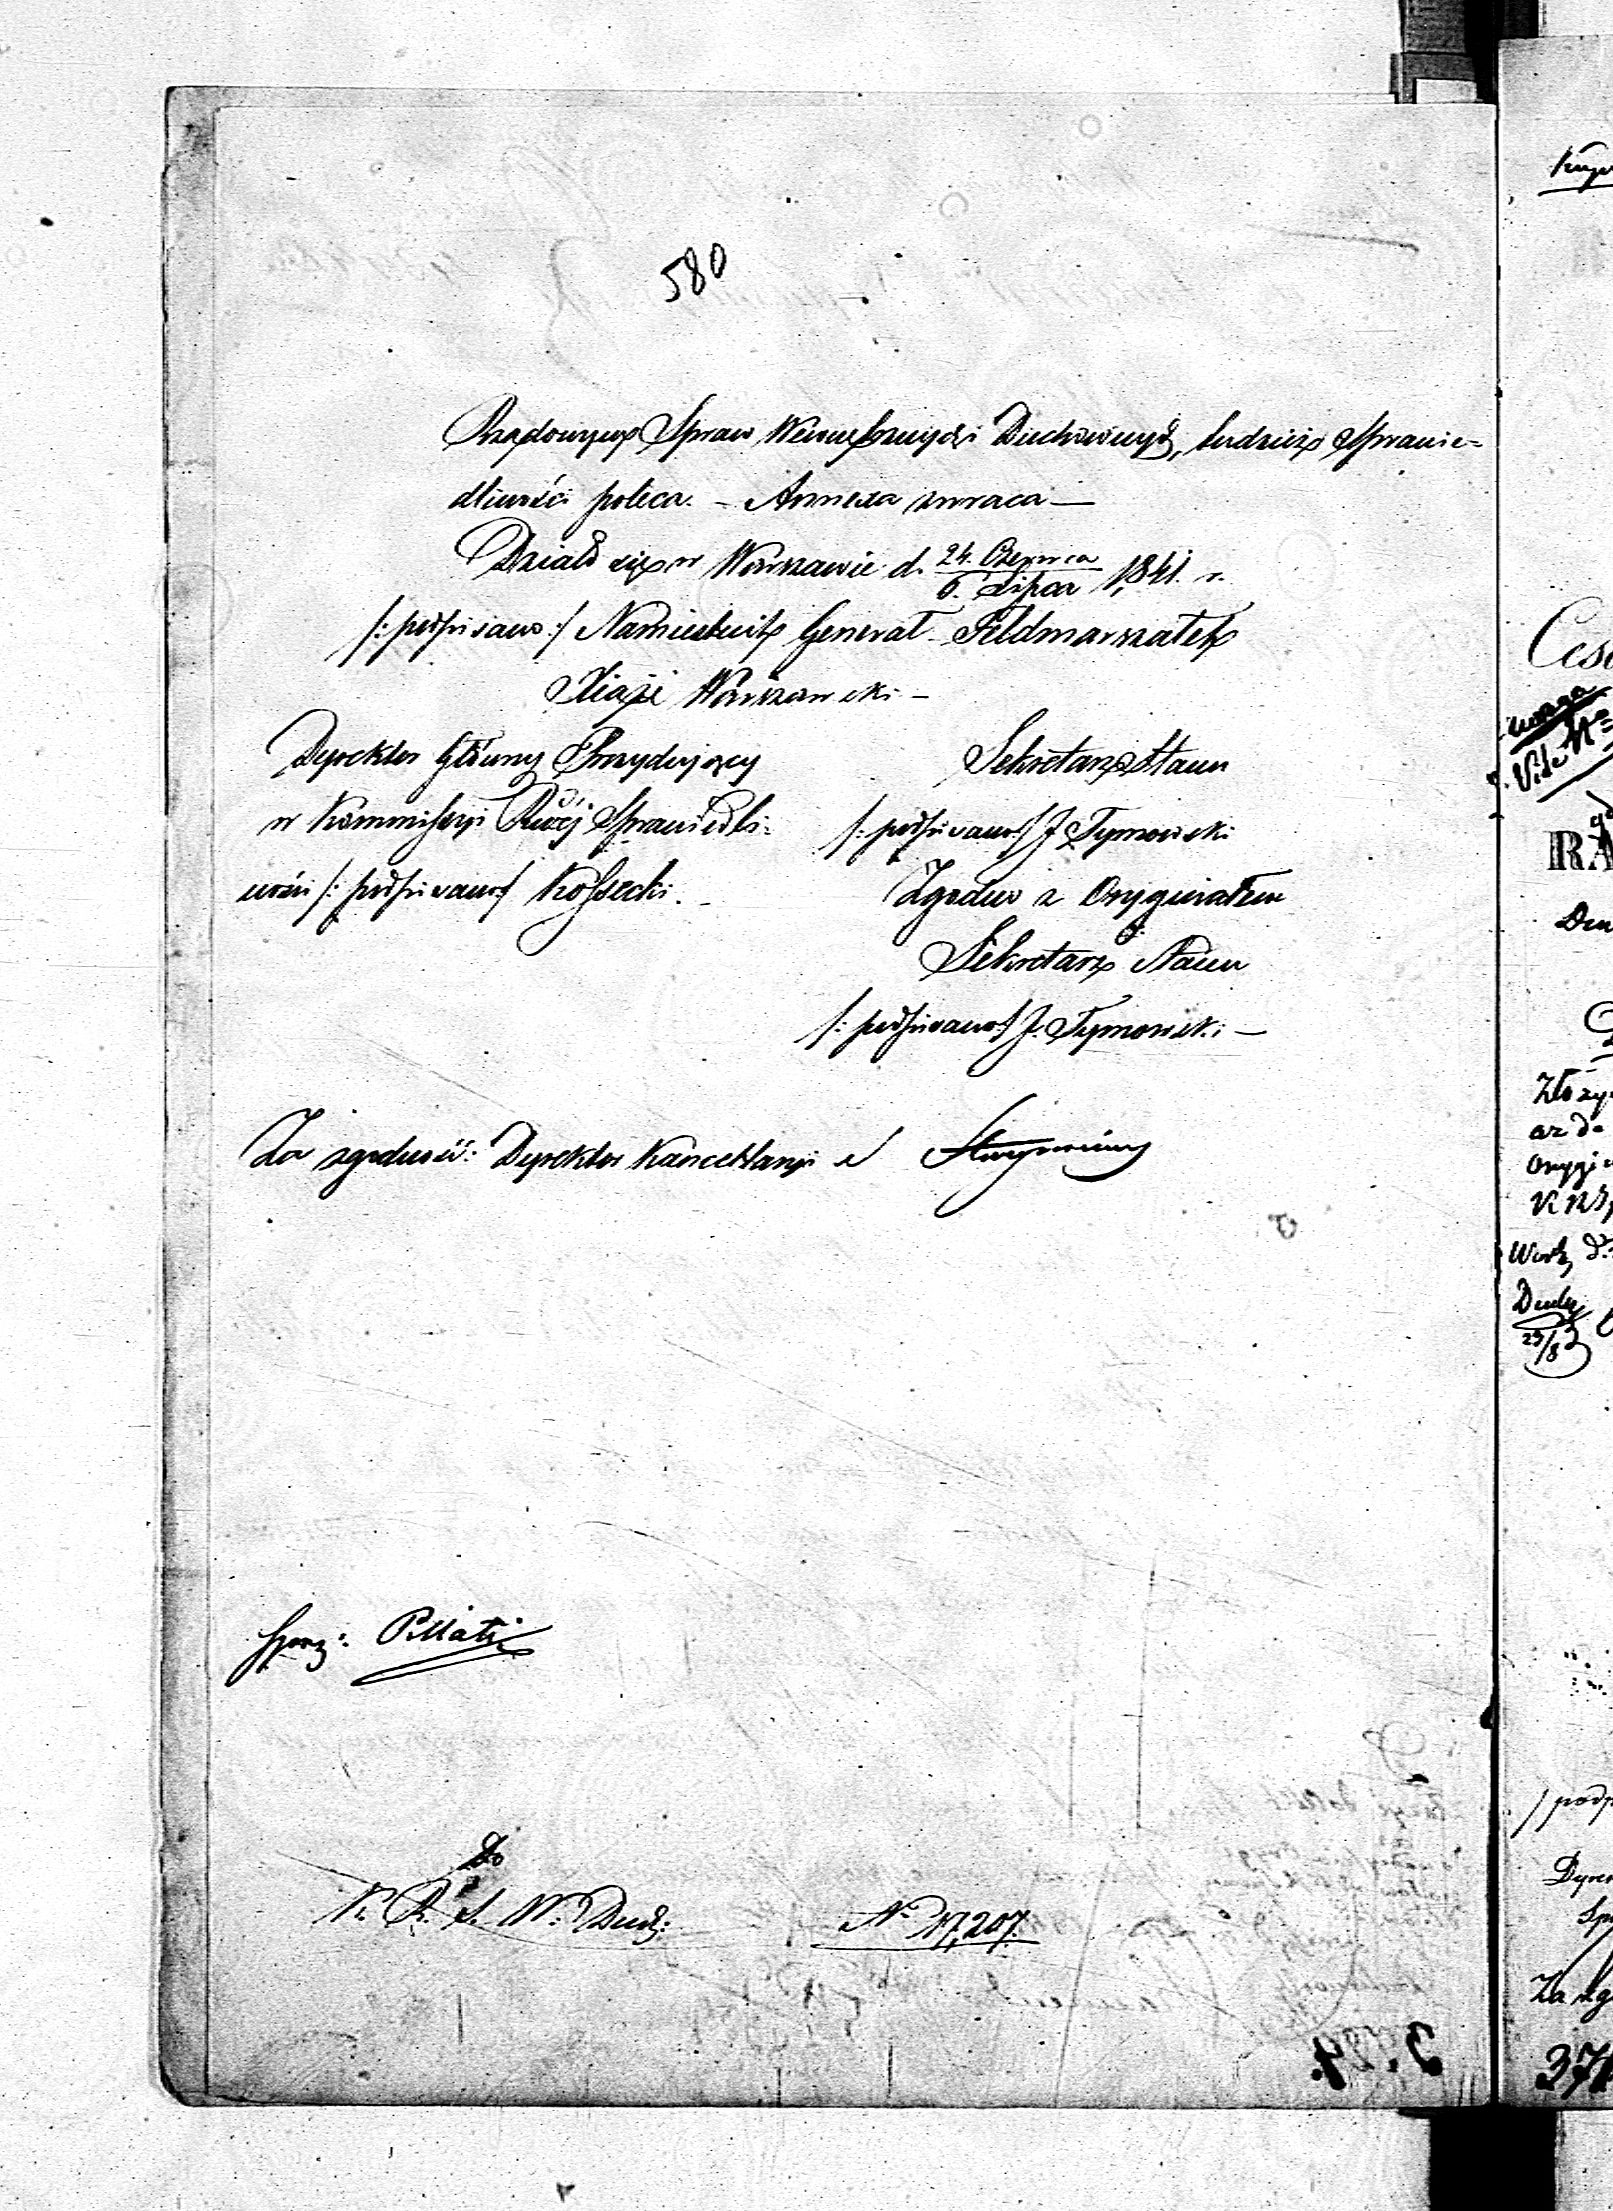 580
Rządowym Spraw Wewnętrznych i Duchownych, tudzież Sprawie=
dliwości poleca. – Annexa zwraca —
Działo się w Warszawie d. 24. Czerwca / 6. Lipca 1841. r.
/: podpisano :/ Namiestnik Generał Feldmarszałek
Xiążę Warszawski –
Dyrektor Główny Prezydujący
w Kommissyi Rwéj Sprawiedli=
wości /: podpisano :/ Kossecki.
Sekretarz Stanu
/: podpisano :/ J. Tymowski
Zgodno z Oryginałem
Sekretarz Stanu
/: podpisano :/ J. Tymowski –
Za zgodność: Dyrektor Kancellaryi
Sporz: Pillati
Do
K. R. S. W. Duch:
No 17,207.
Vide No
RA
Złoży
az do
orygi
29/8
/ podp
Za zg
371